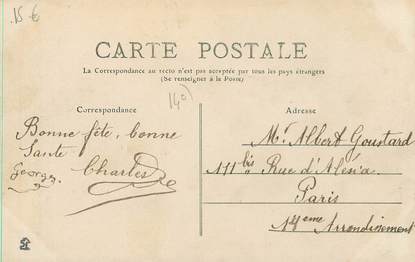 15 €
CARTE POSTALE
La Correspondance au recto n'est pas acceptée par tous les pays étrangers
(Se renseigner à la Poste)
140
Correspondance
Adresse
Bonne fête, bonne
Santé
Georges.
Charles
Mr Albert Goustard
111 bis Rue d'Alésia
Paris
14eme Arrondissement